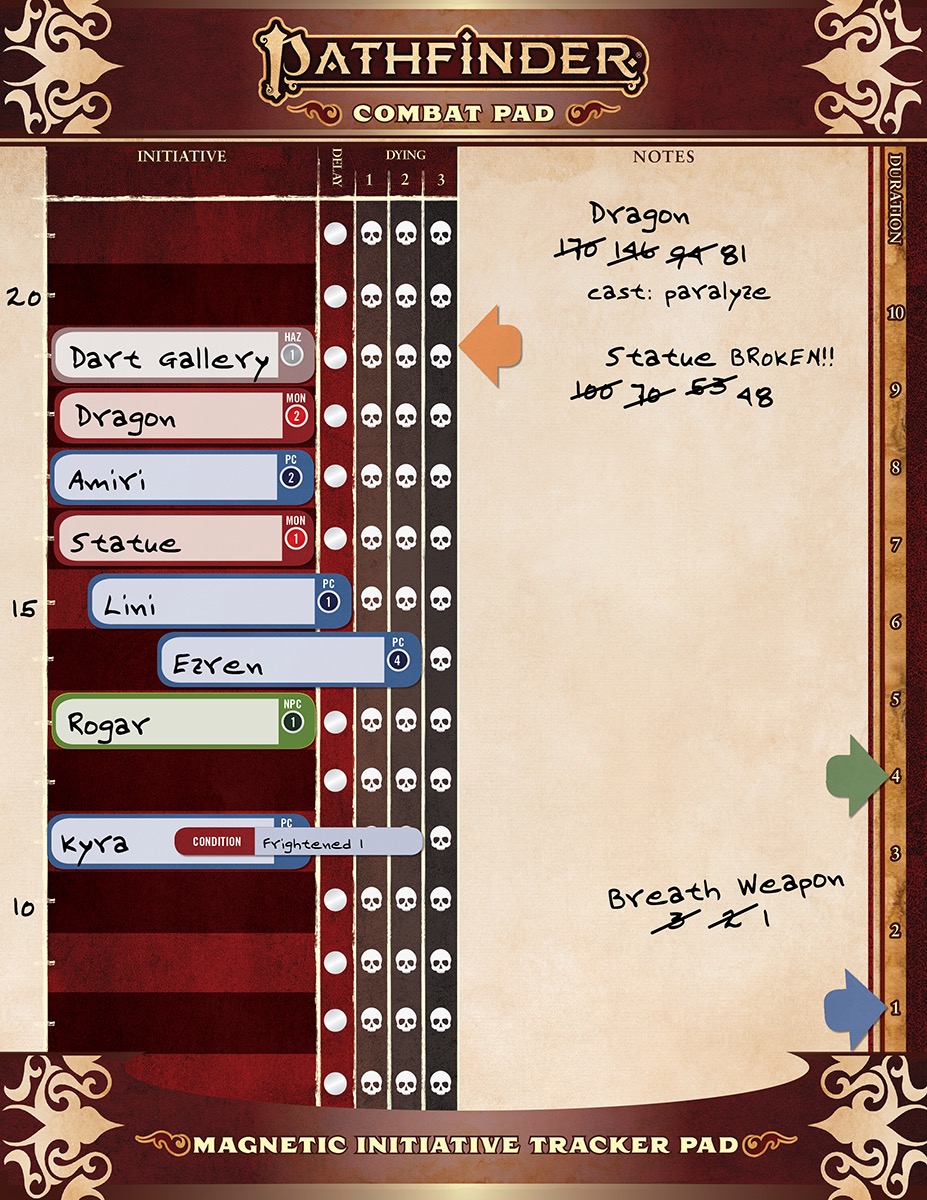 PATHFINDER®
COMBAT PAD
INITIATIVE
DELAY
DYING
1 2 3
NOTES
DURATION
20
15
10
Dart Gallery HAZ 1
Dragon MON 2
Amiri PC 2
Statue MON 1
Lini PC 1
Ezren PC 4
Rogar NPC 1
Kyra PC
CONDITION Frightened 1
Dragon
170 146 94 81
cast: paralyze
Statue BROKEN!!
100 70 53 48
Breath Weapon
3 2 1
10
9
8
7
6
5
4
3
2
1
MAGNETIC INITIATIVE TRACKER PAD